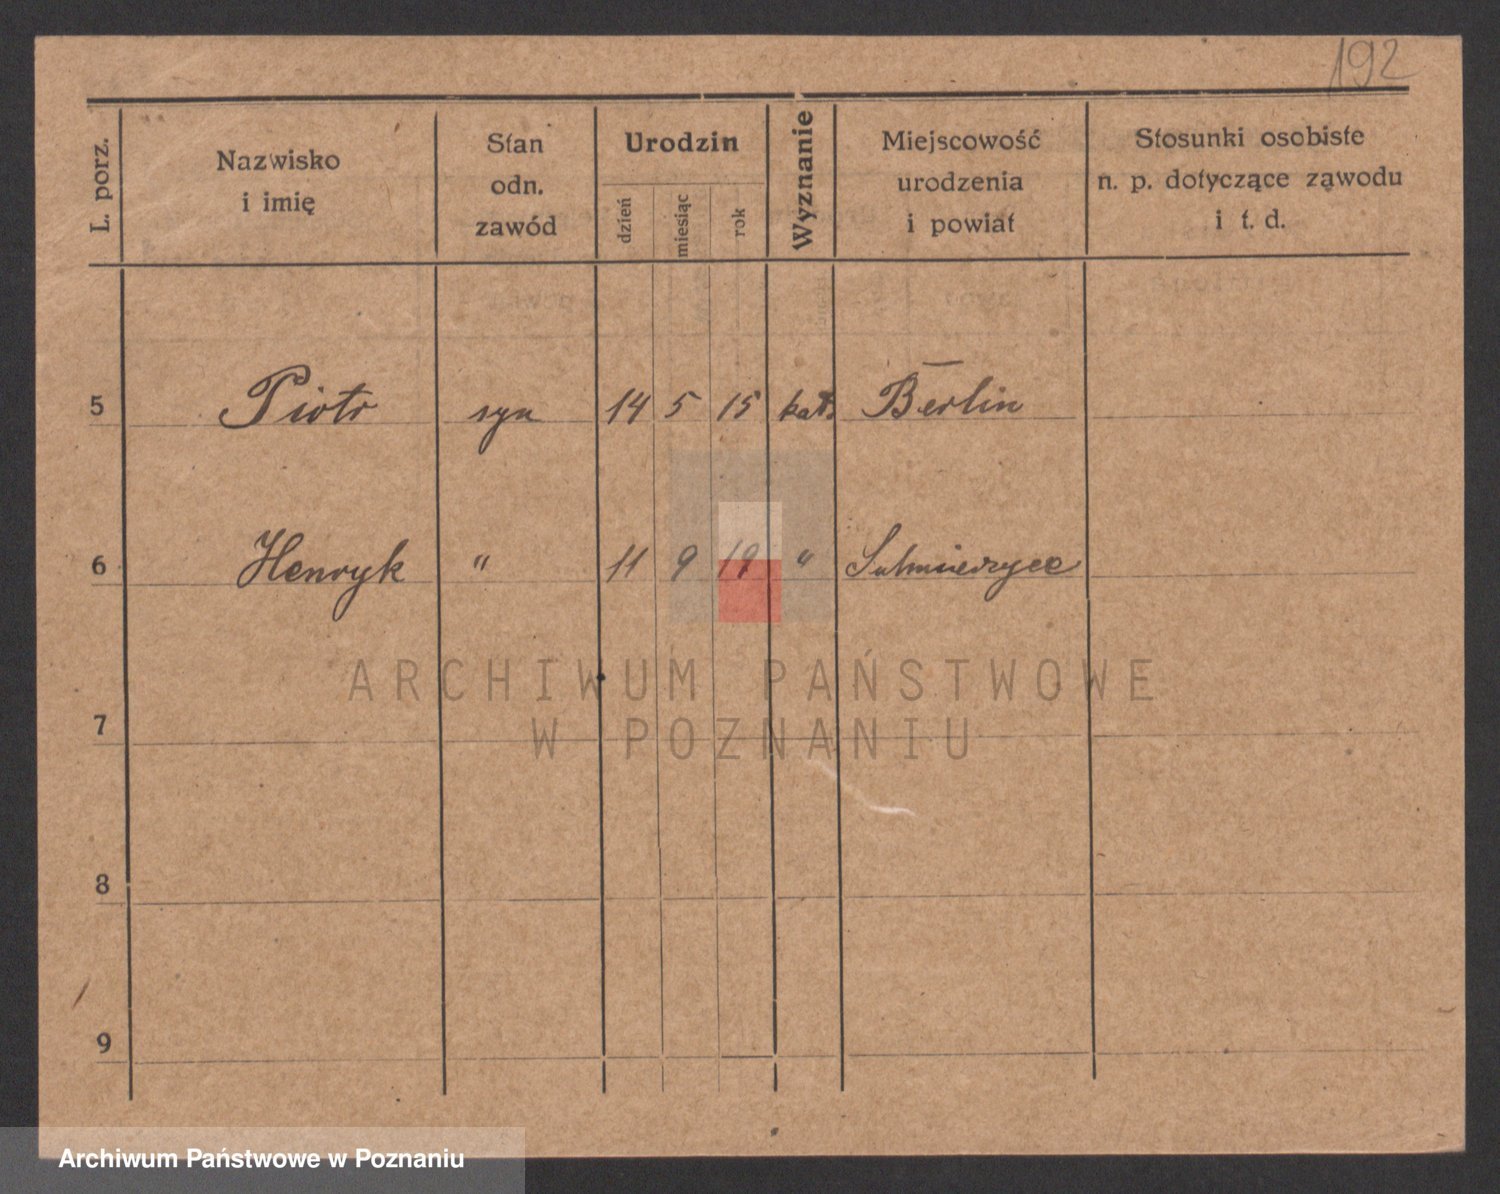 192
L. porz.
Nazwisko
i imię
Stan
odn.
zawód
Urodzin
dzień
miesiąc
rok
Wyznanie
Miejscowość
urodzenia
i powiat
Stosunki osobiste
n. p. dotyczące ząwodu
i t. d.
5 Piotr syn 14 5 15 kat. Berlin
6 Henryk " 11 9 19 " Sulmierzyce
7
8
9
ARCHIWUM PAŃSTWOWE
W POZNANIU
Archiwum Państwowe w Poznaniu